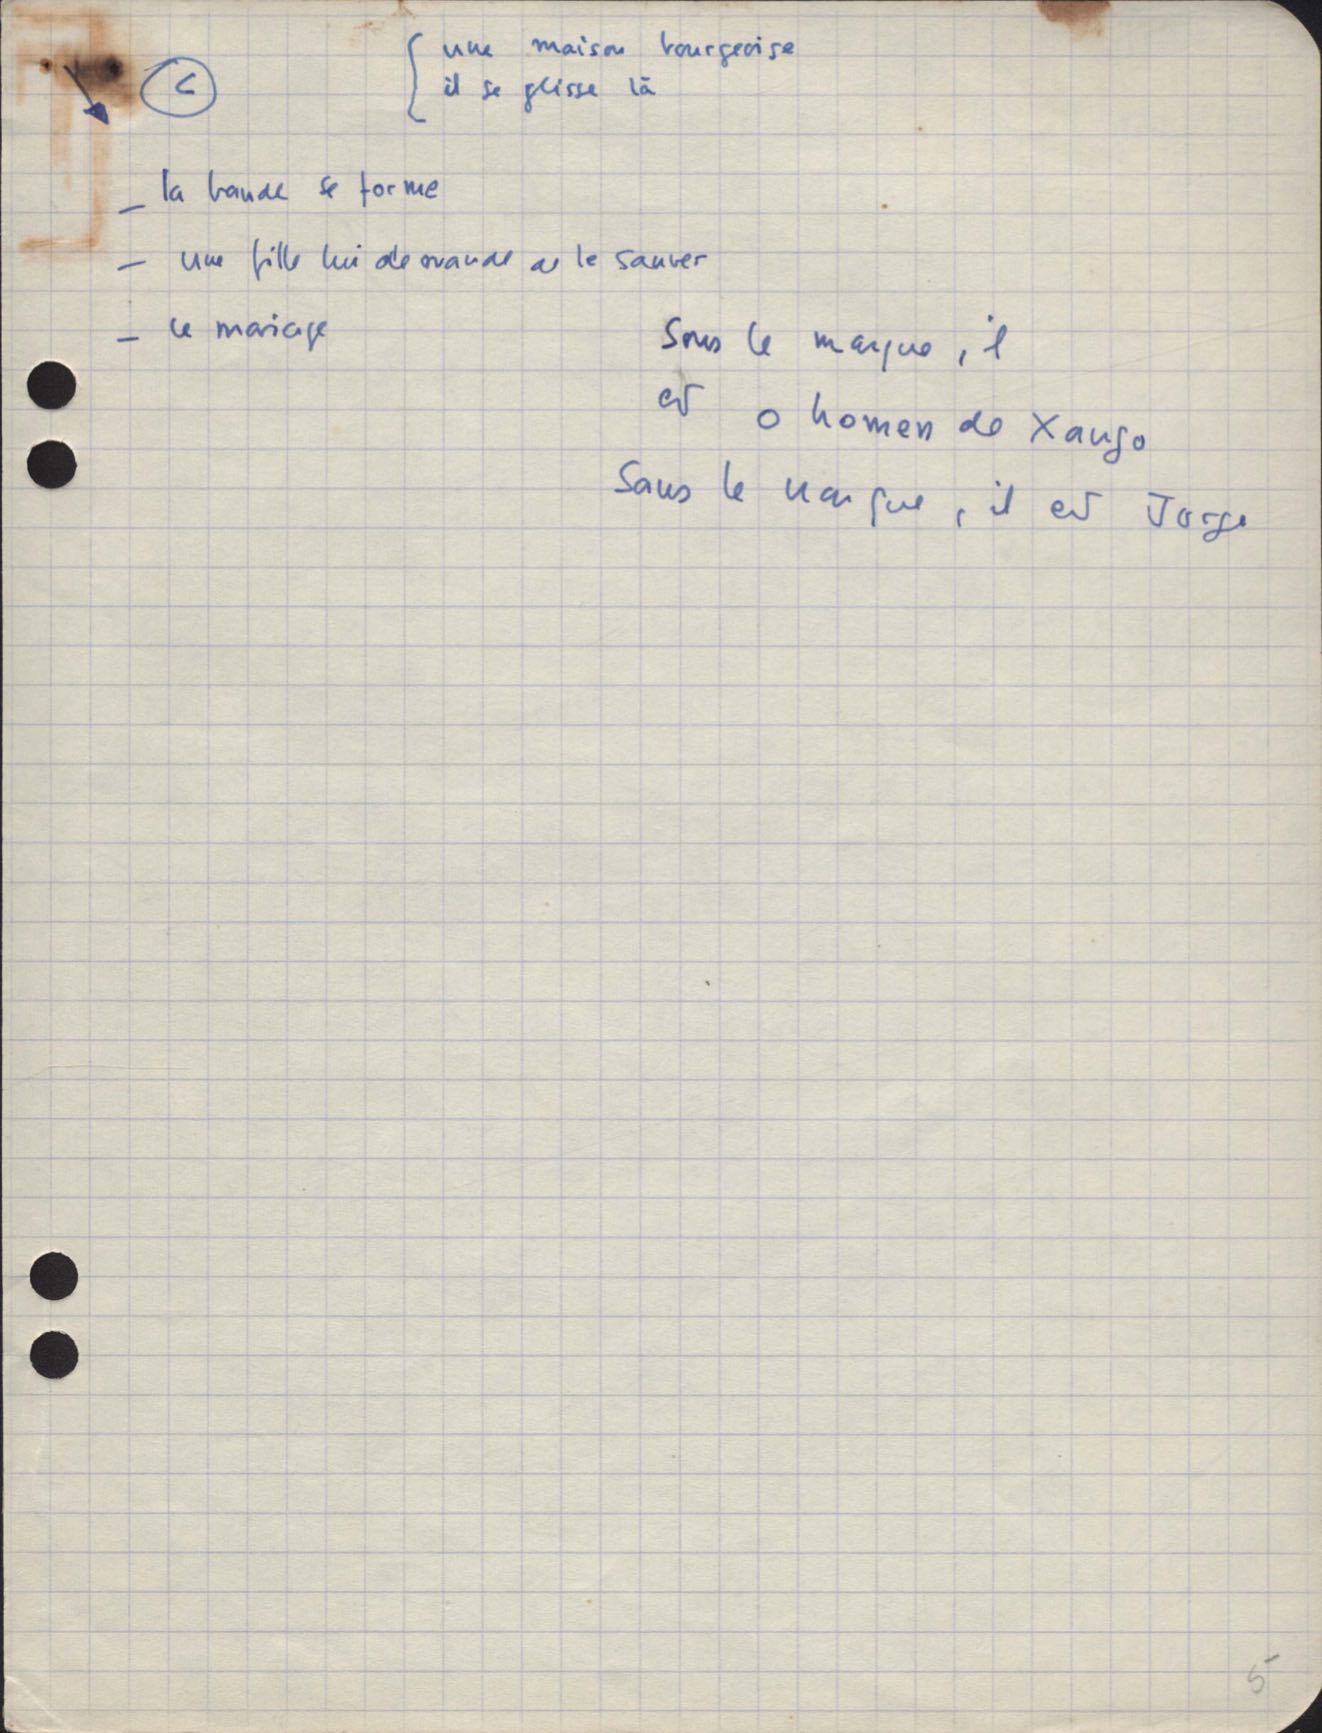 C
une maison bourgeoise
il se glisse là
— la bande se forme
— une fille lui demande de le sauver
— le mariage
Sous le masque, il
est o homen de Xango
Sans le masque, il est Jorge
5